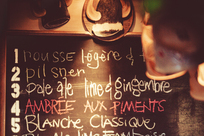 1 rousse légère &
2 pilsner
3 pale ale lime & gingembre
4 AMBRÉE AUX PIMENTS
5 BLANCHE CLASSIQUE